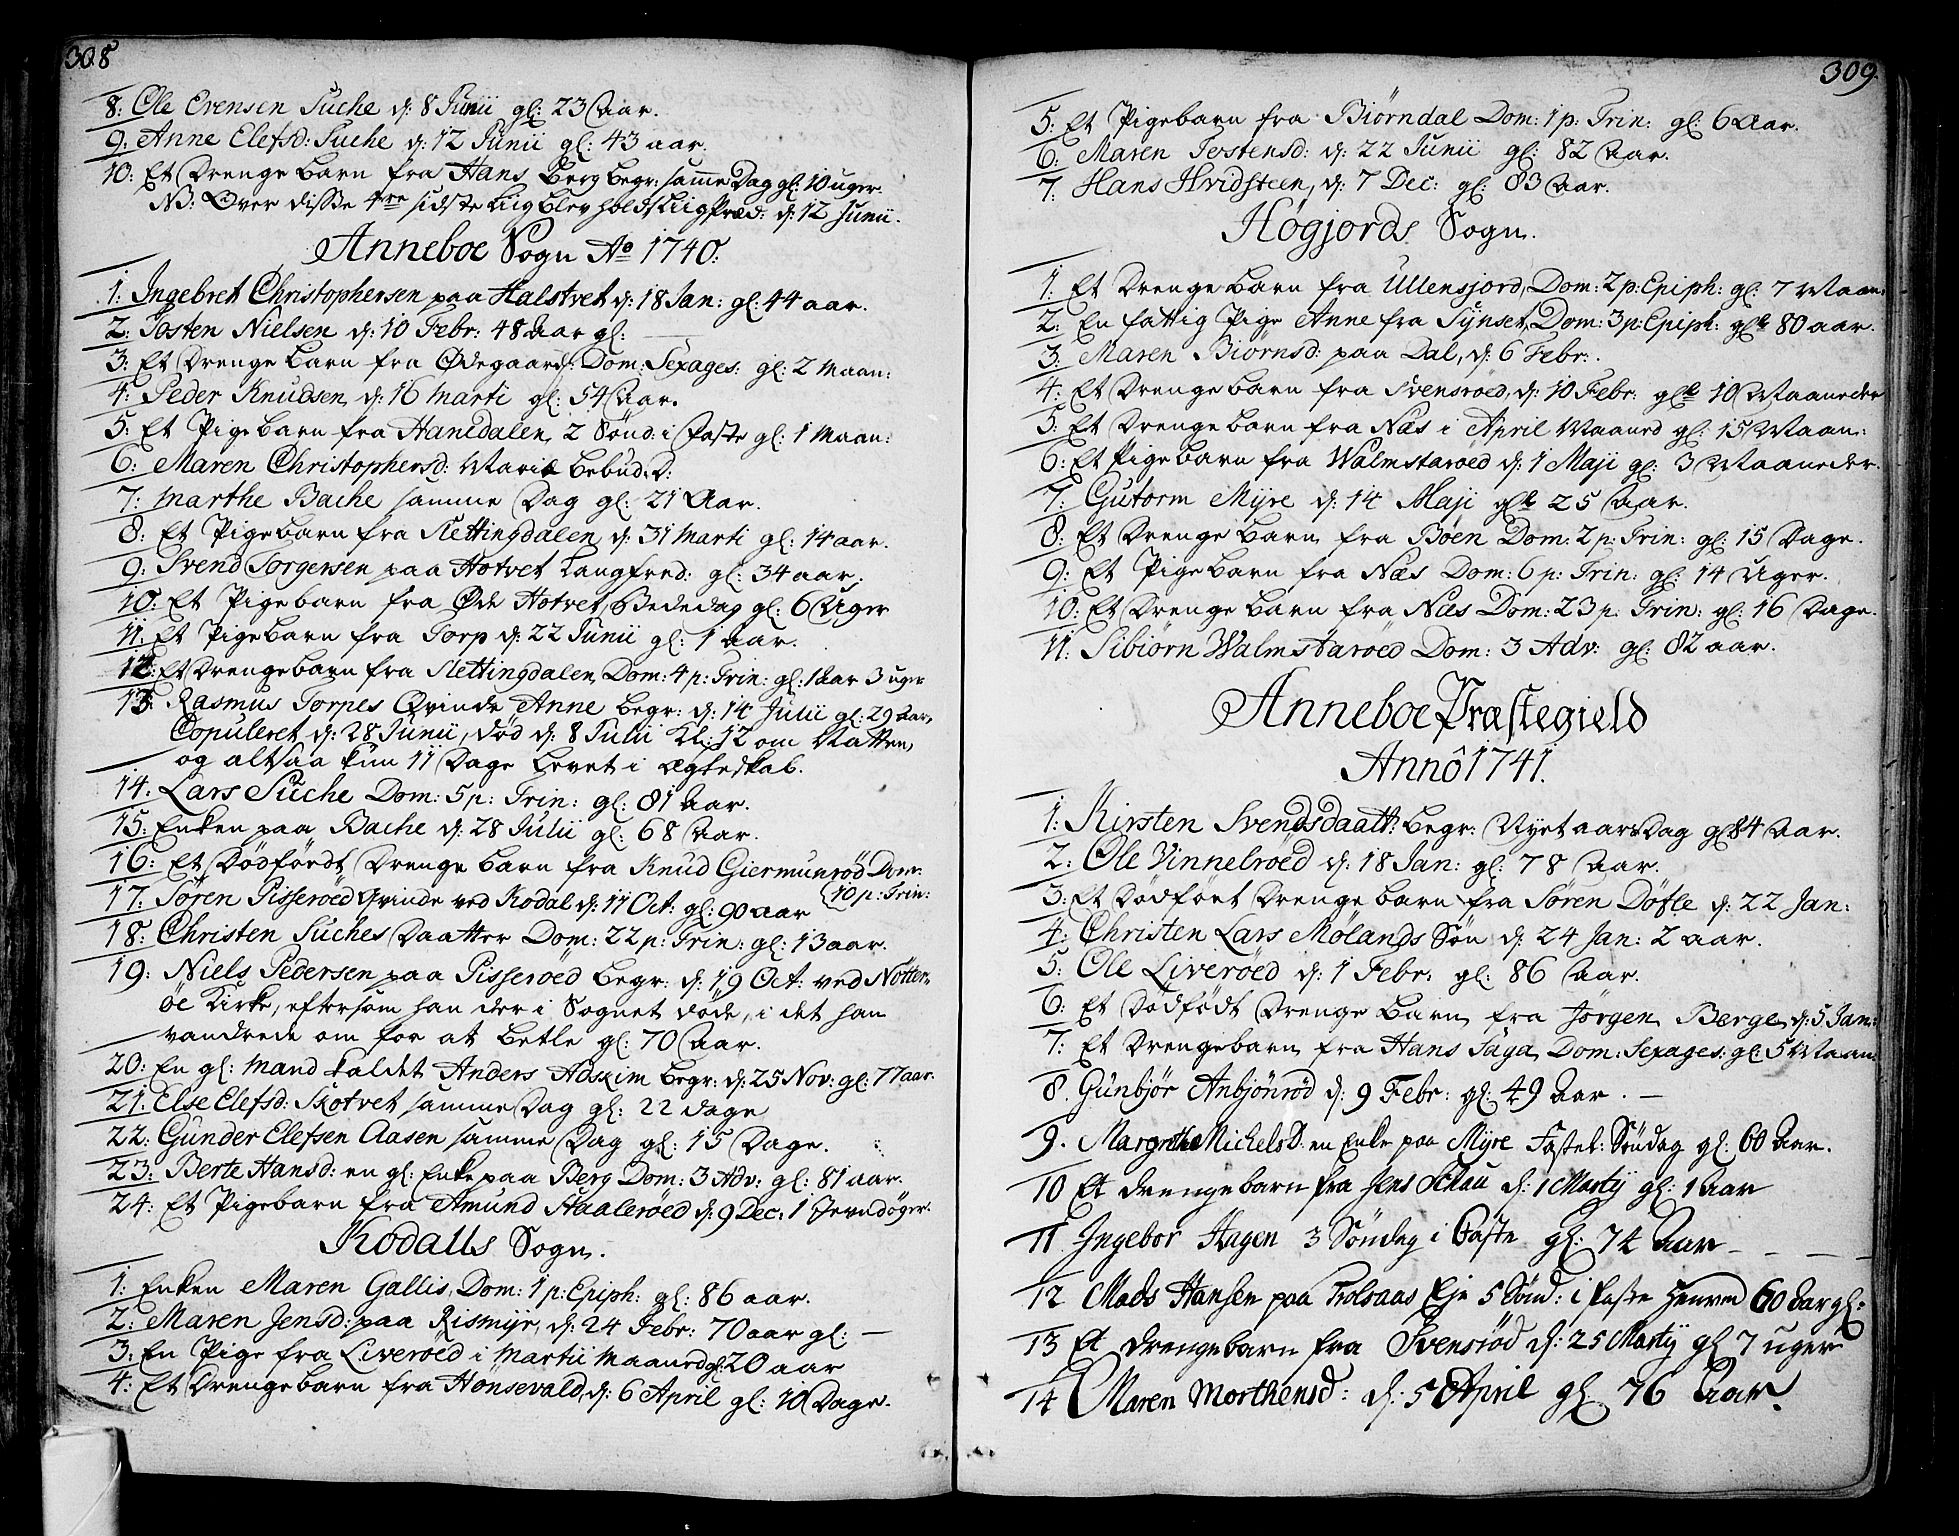 308
8: Ole Evensen Suche d: 8 Junii gl: 23 Aar.
9: Anne Elefsd: Suche d: 12 Junii gl: 43 aar.
10: Et Drenge barn fra Hans Berg begr: samme Dag gl: 10 uger.
NB: Over disse 4re sidste Liig blev holdt LiigPræd: d: 12 Junii.
Anneboe Sogn Ao 1740.
1: Ingebret Christophersen paa Halstvet d: 18 Jan: gl: 44 aar.
2: Tosten Nielsen d: 10 Febr: 48 Aar gl:
3: Et Drenge barn fra Ødegaard: Dom: Sexages: gl: 2 Maan:
4: Peder Knudsen d: 16 Marti gl: 54 Aar.
5: Et Pige barn fra Hanedalen, 2 Sønd: i Faste gl: 1 Maan:
6: Maren Christophersd: Mariæ bebud: D:
7: Marthe Bache samme Dag gl: 21 Aar.
8: Et Pigebarn fra Slettingdalen d: 31 Marti gl: 14 aar.
9: Svend Torgersen paa Hotvet Langfred: gl: 34 aar.
10: Et Pigebarn fra Øde Hotvet, Bededag gl: 6 Uger
11: Et Pigebarn fra Torp d: 22 Junii gl: 1 aar.
12: Et Drengebarn fra Slettingdalen, Dom: 4 p: Trin: gl: 1 Aar 3 uger
13: Rasmus Torpes Qvinde Anne begr: d: 14 Julii gl: 29 Aar,
Copuleret d: 28 Junii, død d: 8 Julii Kl: 12 om Natten,
og altsaa kun 11 Dage levet i ægteskab.
14. Lars Suche Dom: 5 p: Trin: gl: 81 Aar.
15: Enken paa Bache d: 28 Julii gl: 68 Aar.
16: Et Dødfördt Drenge barn fra Knud Giermunrød Dom:
10 p: Trin:
17: Søren Pisserøed Qvinde ved Kodal d: 11 Oct: gl: 90 aar
18: Christen Suches Daatter Dom: 22 p: Trin: gl: 13 aar.
19: Niels Pedersen paa Pisserøed begr: d: 19 Oct: ved Nötter-
öe Kirke, eftersom han der i Sognet døde, i det han
vandrede om for at betle gl: 70 Aar.
20: En gl: Mand kaldet Anders Adskim begr: d: 25 Nov: gl: 77 aar.
21: Else Elefsd: Skotvet samme Dag gl: 22 dage
22: Gunder Elefsen Aasen samme Dag gl: 15 Dage.
23: Berte Hansd: en gl: Enke paa Berg Dom: 3 Adv: gl: 81 aar.
24: Et Pigebarn fra Amund Haalerøed d: 9 Dec: 1 Jevndöger.
Kodalls Sogn.
1: Enken Maren Gallis, Dom: 1 p: Epiph: gl: 86 aar.
2: Maren Jensd: paa Rismyr, d: 24 Febr: 70 aar gl:
3: En Pige fra Liverøed i Martii Maaned gl: 20 aar
4: Et Drengebarn fra Honsevald, d: 6 April gl: 10 Dage.
309
5: Et Pigebarn fra Biørndal Dom: 1 p: Trin: gl: 6 Aar.
6: Maren Tostensd: d: 22 Junii gl: 82 Aar.
7: Hans Hvidsteen, d: 7 Dec: gl: 83 Aar.
Högjords Sogn.
1: Et Drenge barn fra Ullensjord, Dom: 2 p: Epiph: gl: 7 Maan:
2: En fattig Pige Anne fra Synset, Dom: 3 p: Epiph: gl: 80 aar.
3: Maren Biørnsd: paa Dal, d: 6 Febr:
4: Et Drenge barn fra Svensrøed, d: 10 Febr: gl: 10 Maaneder
5: Et Drenge barn fra Næs i April Maaned gl: 15 Maan:
6: Et Pigebarn fra Walmstarøed d: 1 Maji gl: 3 Maaneder.
7: Gutorm Myre d: 14 Maji gl: 25 Aar.
8: Et Drenge barn fra Böen Dom: 2 p: Trin: gl: 15 Dage.
9: Et Pigebarn fra Næs Dom: 6 p: Trin: gl: 14 Uger.
10: Et Drenge barn fra Næs Dom: 23 p. Trin: gl: 16 Dage.
11: Sibiørn Walmstarøed Dom: 3 Adv: gl: 82 aar.
Anneboe Præstegield
Annô 1741.
1: Kirsten Svendsdaatt: begr: Nyetaars Dag gl 84 Aar.
2: Ole Vinnelrøed d: 18 Jan: gl: 78 Aar.
3: Et Dödföet Drenge barn fra Søren Döfle d: 22 Jan:
4: Christen Lars Mølands Søn d: 24 Jan: 2 aar.
5: Ole Liverøed d: 1 Febr: gl: 86 Aar.
6: Et Dödfödt Drenge barn fra Jörgen Berge, d: 5 Jan:
7: Et Drengebarn fra Hans Saga, Dom: Sexages: gl: 5 Maan:
8. Gunbjör Anbjönröd d: 9 Febr: gl: 49 Aar.
9. Margrethe MichelsD: en Enke paa Myre Fastel: Söndag gl: 60 Aar.
10 Et drengebarn fra Jens Skau d: 1 Martij gl: 1 Aar
11 Ingebor Hagen 3 Söndag i Faste gl: 74 Aar
12 Mads Hansen paa Trolsaas Eje 5 Sönd: i Faste henved 60 Aar gl:
13 Et drengebarn fra Svensröd d: 25 Martij gl 7 uger
14 Maren Morthensd: d: 5 April gl. 76 Aar.